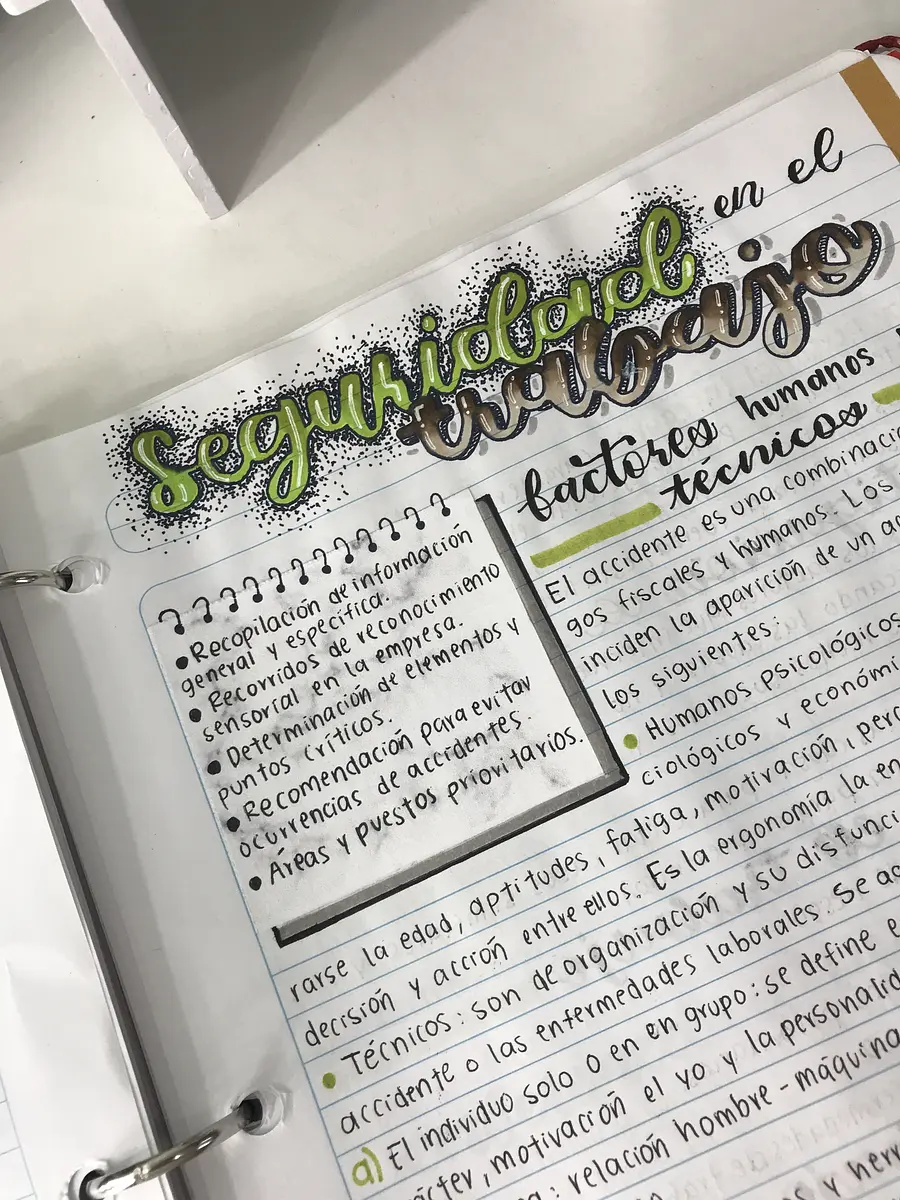 Seguridad en el
trabajo
factores humanos
técnicos
• Recopilación de información
general y específica.
• Recorridos de reconocimiento
sensorial en la empresa.
• Determinación de elementos y
puntos críticos.
• Recomendación para evitar
ocurrencias de accidentes.
• Áreas y puestos prioritarios.
El accidente es una combinació
gos fiscales y humanos. Los
inciden la aparición de un ac
los siguientes:
• Humanos psicológicos
ciológicos y económi
rarse la edad, aptitudes, fatiga, motivación, perc
decisión y acción entre ellos. Es la ergonomía la en
• Técnicos: son de organización y su disfunci
accidente o las enfermedades laborales. Se ac
a) El individuo solo o en en grupo: se define e
ácter, motivación el yo y la personalid
na: relación hombre - máquina
y herr